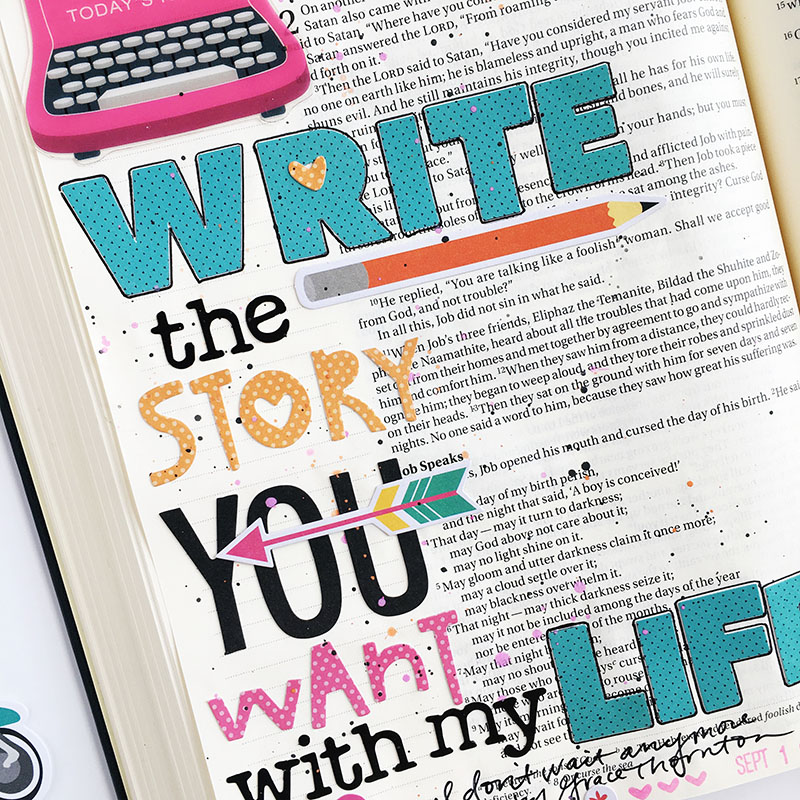 TODAY'S
2
On any
Satan also came with
d to Satan, "Where have you co
Satan answered the LORD, "From roaming
d forth on it."
Then the LORD said to Satan, "Have you considered my servant Job
no one on earth like him; he is blameless and upright, a man who fears God and
shuns evil. And he still maintains his integrity, though you incited me against
all he has for his own life.
and bones, and he will surely
your hands; but you must
and afflicted Job with pain-
head. 8Then Job took a piece
sat among the ashes.
integrity? Curse God
WRITE
woman. Shall we accept good
"You are talking like a foolish
10He replied,
from God, and not trouble?"
In all this, Job did not sin in what he said.
the
When Job's three friends, Eliphaz the Temanite, Bildad the Shuhite and Zo-
Naamathite, heard about all the troubles that had come upon him, they
from their homes and met together by agreement to go and sympathize with
and comfort him. 12When they saw him from a distance, they could hardly rec-
him; they began to weep aloud, and they tore their robes and sprinkled dust
on their heads. 13Then they sat on the ground with him for seven days and seven
nights. No one said a word to him, because they saw how great his suffering was.
STORY
opened his mouth and cursed the day of his birth. 2He sa
Job Speaks
Job
YOU
day of my birth perish,
and the night that said, 'A boy is conceived!'
4That day—may it turn to darkness;
may God above not care about it;
may no light shine on it.
5May gloom and utter darkness claim it once more;
may a cloud settle over it;
may blackness overwhelm it.
6That night—may thick darkness seize it;
may it not be included among the days of the year
nor be entered of the months.
WAnT
7May the night
may no shout heard
8May those who curse
with my
LIF
foolish
of the sea
don't wait anymore
Grace Thornton
SEPT 1